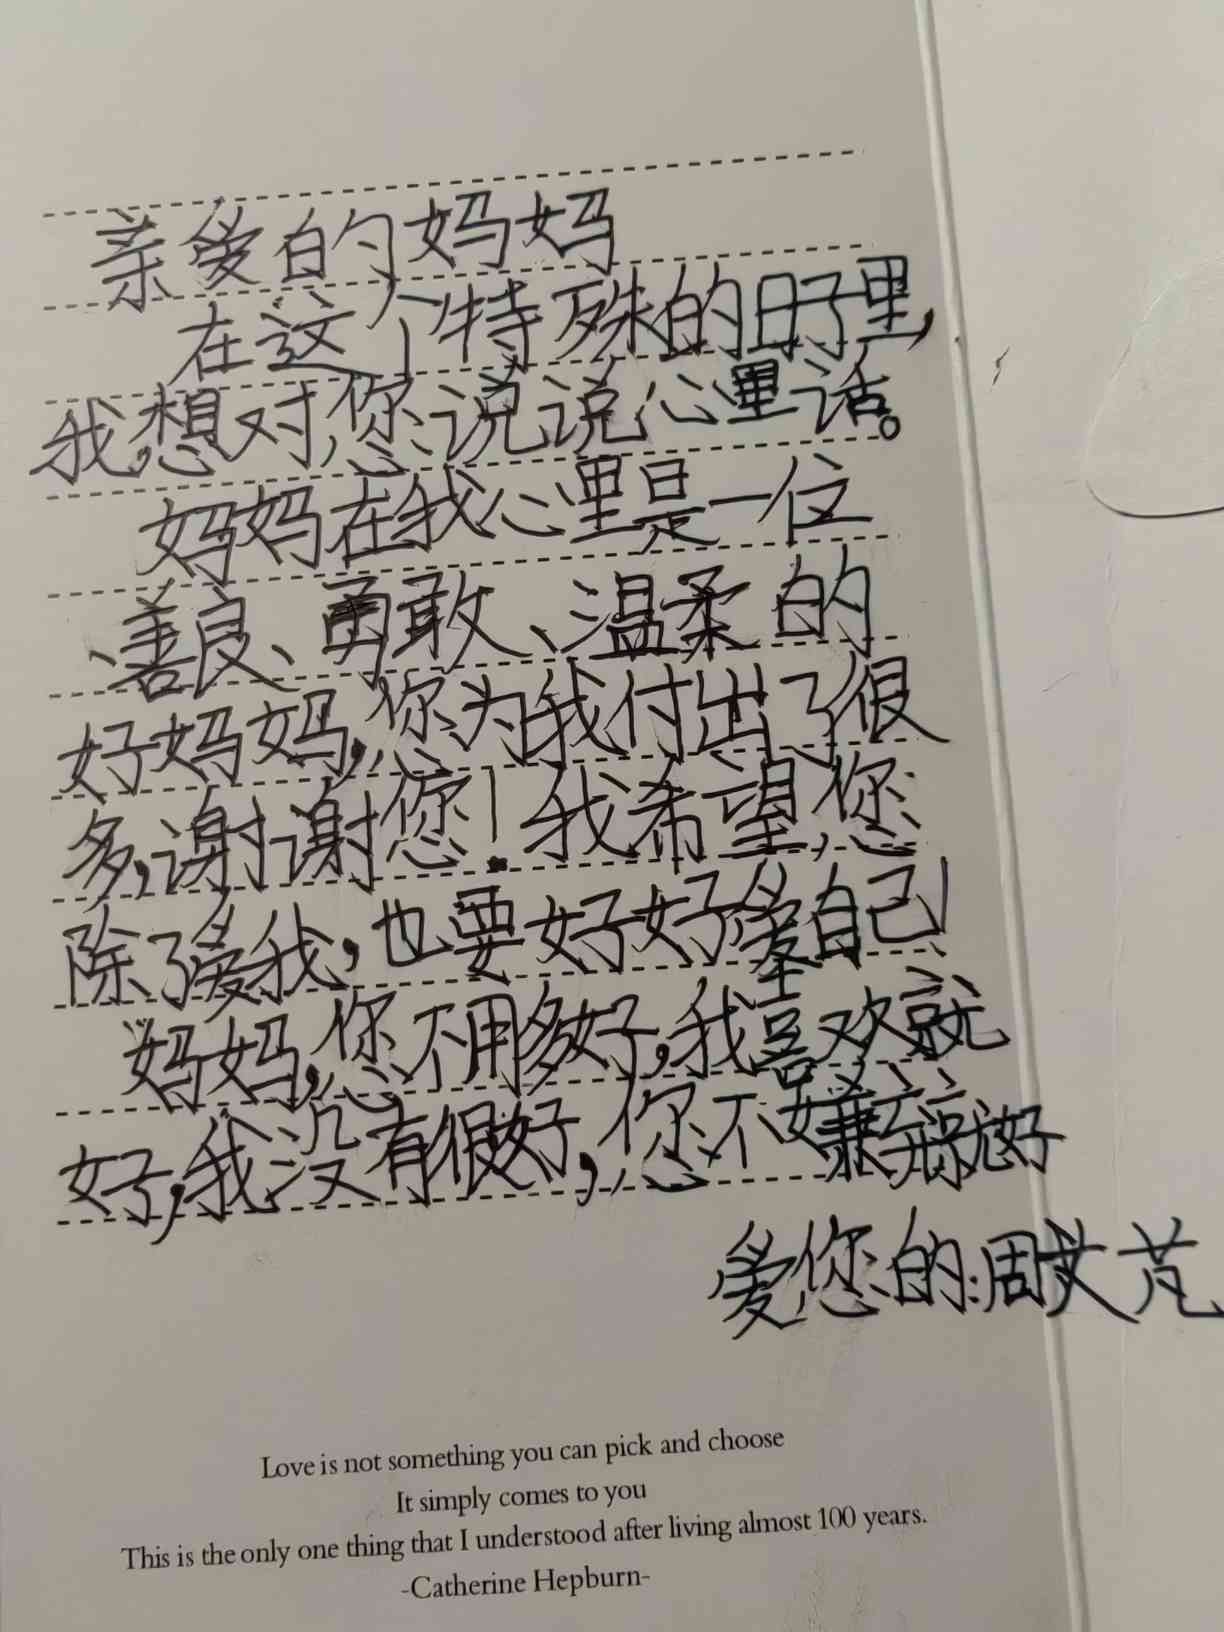 亲爱的妈妈
在这个特殊的日子里,
我想对您说说心里话。
妈妈在我心里是一位
、善良、勇敢、温柔的
好妈妈,您为我付出了很
多,谢谢您!我希望您
除了爱我,也要好好爱自己!
妈妈,您不用多好,我喜欢就
好,我没有很好,您不嫌弃就好
爱您的:周艾芃
Love is not something you can pick and choose
It simply comes to you
This is the only one thing that I understood after living almost 100 years.
-Catherine Hepburn-